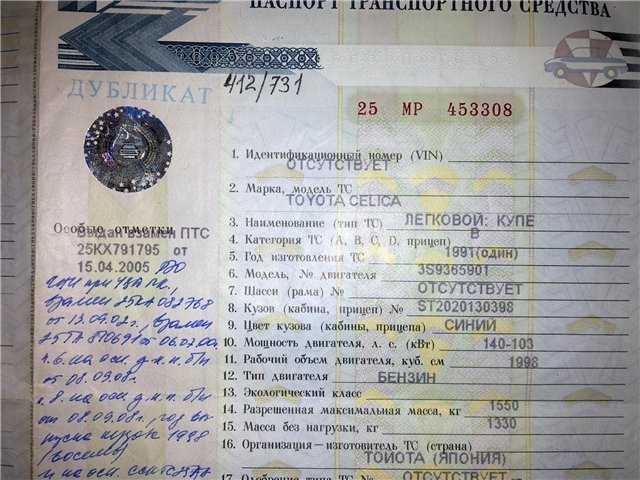 ПАСПОРТ ТРАНСПОРТНОГО СРЕДСТВА
ДУБЛИКАТ
412/731
25 МР 453308
1. Идентификационный номер (VIN)
ОТСУТСТВУЕТ
2. Марка, модель ТС
TOYOTA CELICA
3. Наименование (тип ТС) ЛЕГКОВОЙ: КУПЕ
4. Категория ТС (А, В, С, D, прицеп) В
5. Год изготовления ТС 1991(один)
6. Модель, № двигателя 3S9365901
7. Шасси (рама) № ОТСУТСТВУЕТ
8. Кузов (кабина, прицеп) № ST2020130398
9. Цвет кузова (кабины, прицепа) СИНИЙ
10. Мощность двигателя, л. с. (кВт) 140-103
11. Рабочий объем двигателя, куб. см 1998
12. Тип двигателя БЕНЗИН
13. Экологический класс
14. Разрешенная максимальная масса, кг 1550
15. Масса без нагрузки, кг 1330
16. Организация—изготовитель ТС (страна)
ТОЙОТА (ЯПОНИЯ)
17. Одобрение типа ТС № ОТСУТСТВУЕТ
Особые отметки
Выдан взамен ПТС
25КХ791795 от
15.04.2005
взамен 25КА082768
от 13.09.02г., взамен
25ТА810691 от 06.02.00г.
п.6. на осн. д.к.п. б/н
от 08.09.08г.
п.8. на осн. д.к.п. б/н
от 08.09.08г., год вы-
пуска кузов 1998